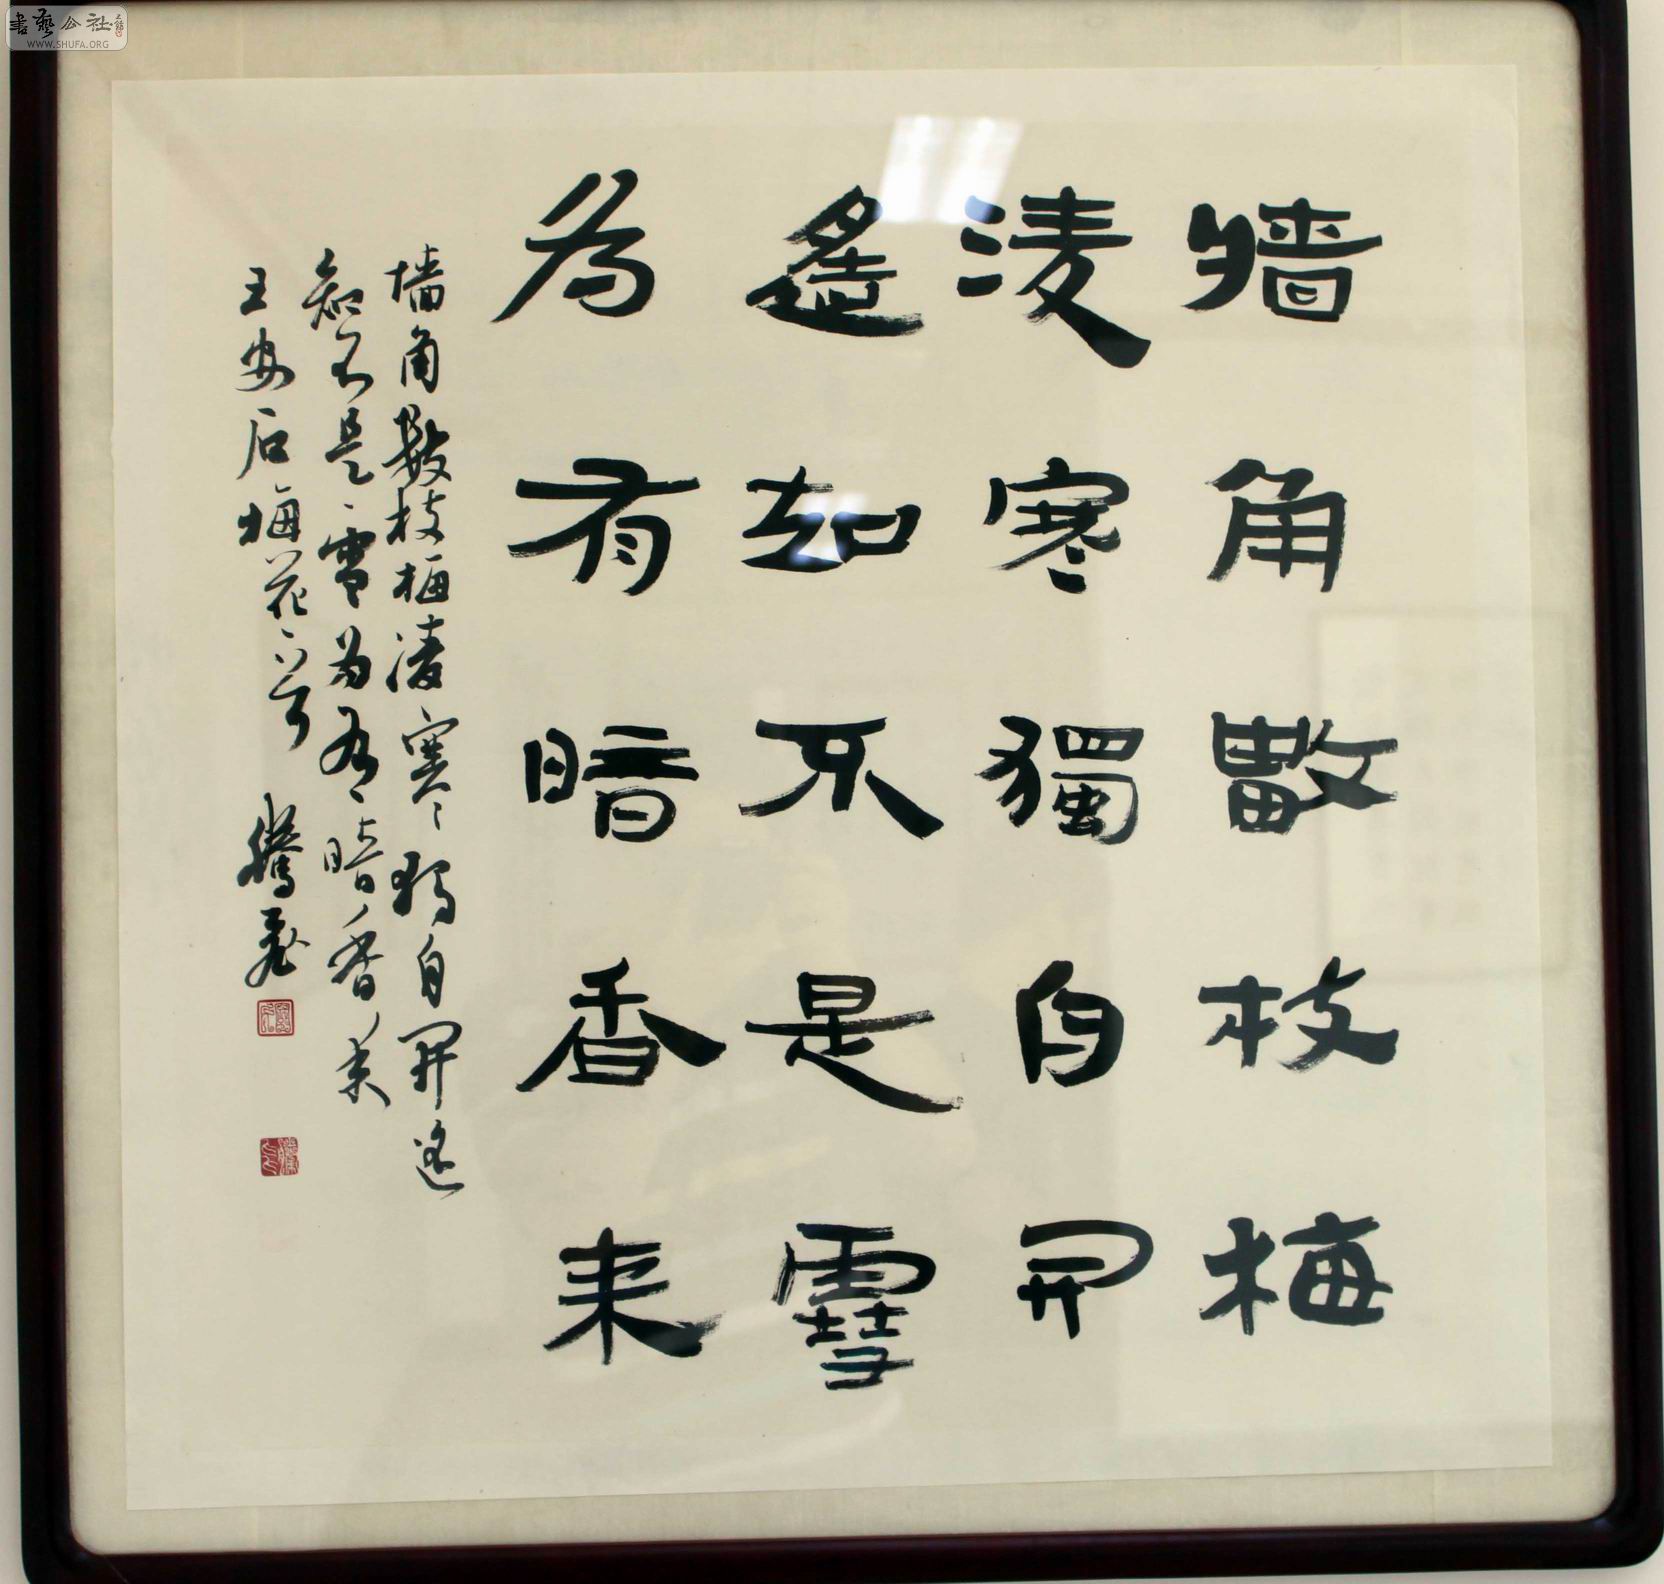 墻角數枝梅
凌寒獨自開
遙知不是雪
為有暗香来
墙角數枝梅凌寒獨自開遙
知不是雪为有暗香来
王安石梅花一首 騰飛
書藝公社
WWW.SHUFA.ORG